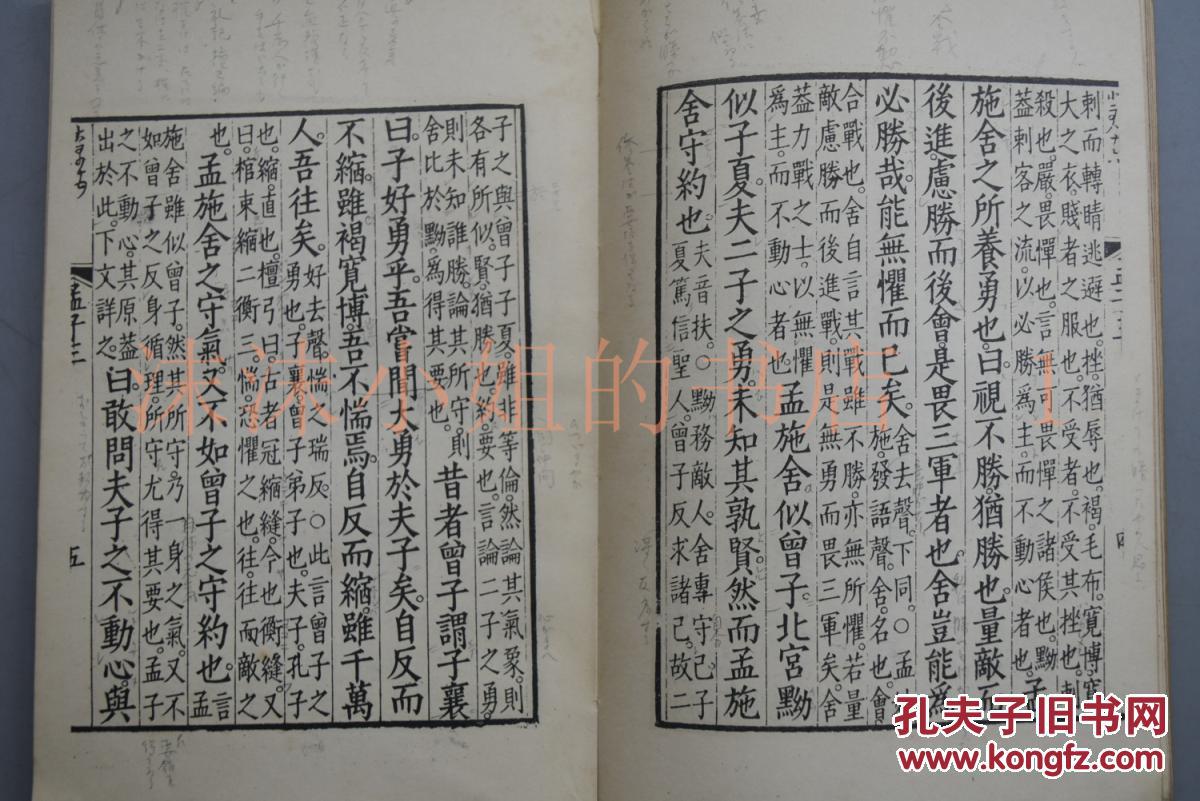 刺而轉睛逃避也。挫。猶辱也。褐。毛布。寬博。寬
大之衣。賤者之服也。不受者。不受其挫也。刺
殺也。嚴。畏憚也。言無可畏憚之諸侯也。黝
蓋刺客之流。以必勝爲主。而不動心者也。孟
施舍之所養勇也。曰。視不勝。猶勝也。量敵而
後進。慮勝而後會。是畏三軍者也。舍豈能爲
必勝哉。能無懼而已矣。舍去聲。下同。○孟
施。發語聲。舍。名也。會
合戰也。舍自言其戰雖不勝。亦無所懼。若量
敵慮勝而後進戰。則是無勇而畏三軍矣。舍
蓋力戰之士。以無懼
爲主。而不動心者也。孟施舍似曾子。北宮黝
似子夏。夫二子之勇。未知其孰賢。然而孟施
舍守約也。夫音扶。○黝務敵人。舍專守己。子
夏篤信聖人。曾子反求諸己。故二
子之與曾子子夏。雖非等倫。然論其氣象。則
各有所似。賢。猶勝也。約。要也。言論二子之勇。
則未知誰勝。論其所守。則
舍比於黝。爲得其要也。昔者曾子謂子襄
曰。子好勇乎。吾嘗聞大勇於夫子矣。自反而
不縮。雖褐寬博。吾不惴焉。自反而縮。雖千萬
人。吾往矣。好去聲。惴之瑞反。○此言曾子之
勇也。子襄。曾子弟子也。夫子。孔子
也。縮。直也。檀弓曰。古者冠縮縫。今也衡縫。又
曰。棺束縮二衡三。惴。恐懼之也。往。往而敵之
也。孟施舍之守氣。又不如曾子之守約也。言
孟
施舍雖似曾子。然其所守。乃一身之氣。又不
如曾子之反身循理。所守尤得其要也。孟子
之不動心。其原蓋
出於此。下文詳之。曰。敢問夫子之不動心。與
孟子三
五
沐沐小姐的书店
孔夫子旧书网
www.kongfz.com